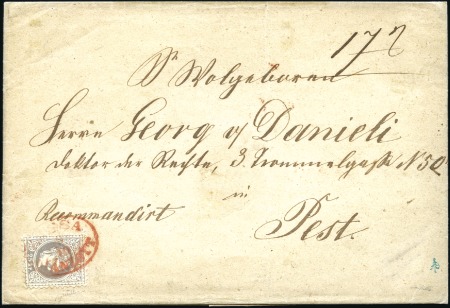 172
Sr Wolgeboren
Herrn Georg v Danieli
Doktor der Rechte, 3. Trommelgasse N 50
in
Recommandirt
Pest.